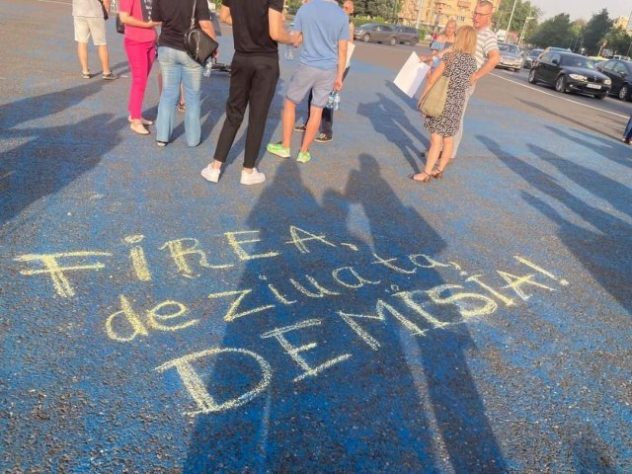 FIREA,
de ziuata,
DEMISIA!